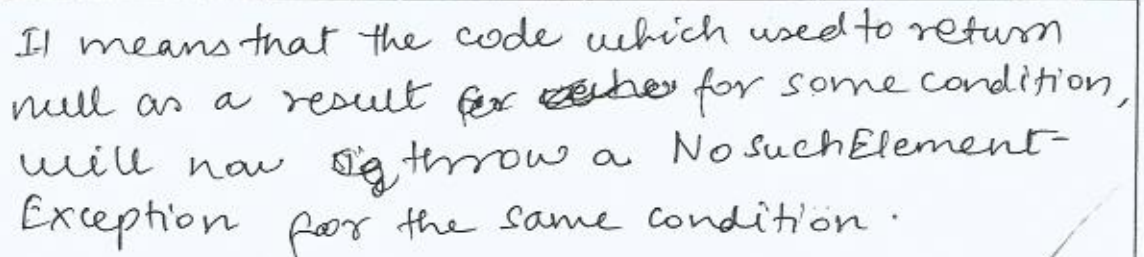 It means that the code which used to return
null as a result for for some condition,
will now throw a NosuchElement-
Exception for the same condition.